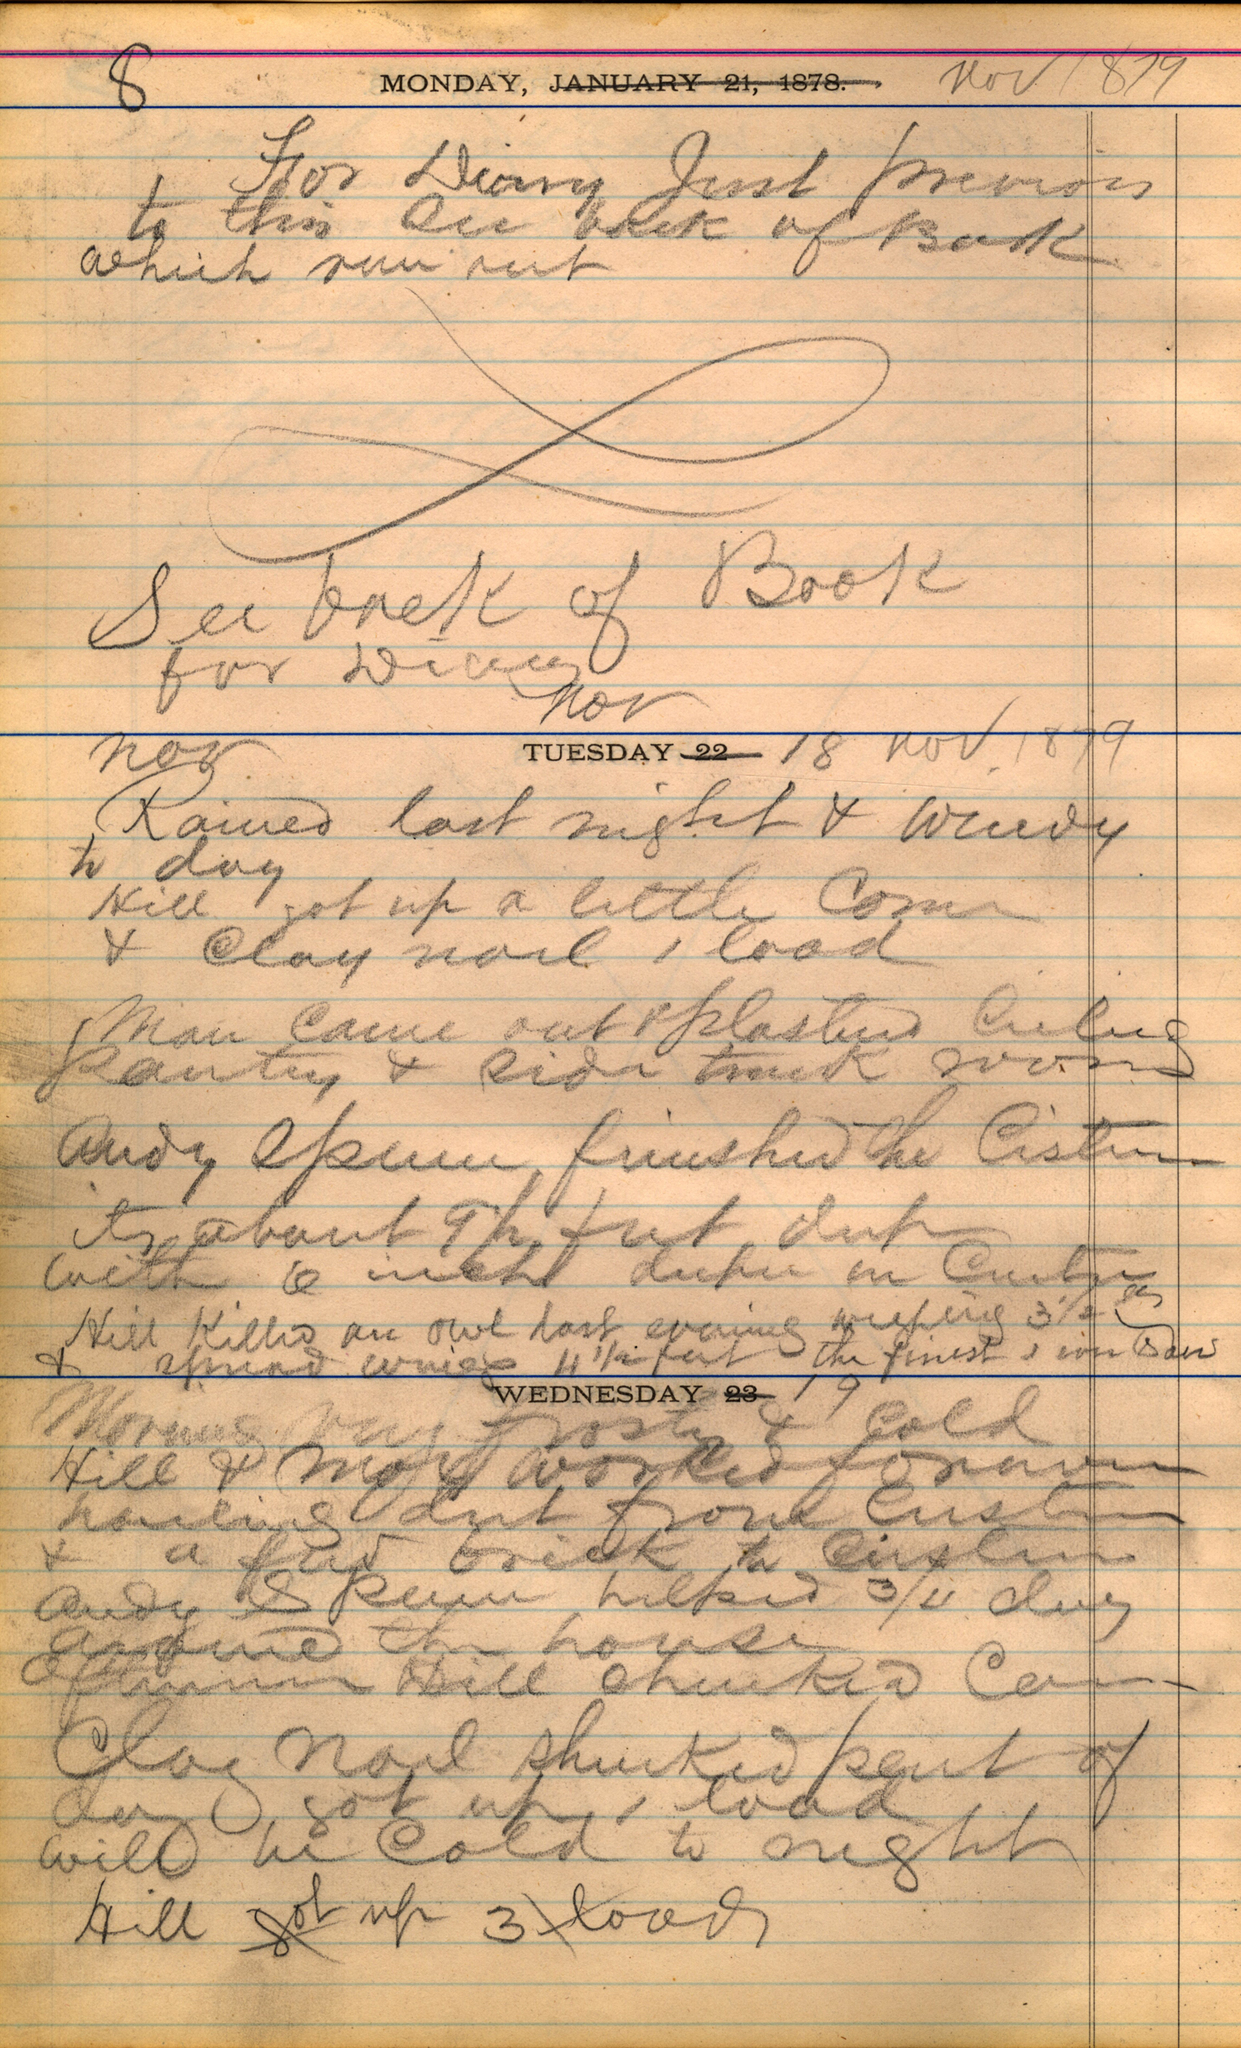 8 MONDAY, JANUARY 21, 1878. Nov 1879
For Diary Just previous
to this See back of Book
which run out
See back of Book
for Diary
Nov
Nov TUESDAY 22 18 Nov. 1879
Rained last night & Windy
to day
Hill got up a little Corn
& Clay noel 1 load
Man came out & plasterd Ceiling
pantry & side trunk room
Andy Spenn finished the Cistern
its about 9½ feet deep
with 6 inch deeper in Center
Hill Killed an owl last evening 3½
& spread wings 4½ feet the finest I ever Saw
WEDNESDAY 23 19
Morning very frosty & Cold
Hill & worked forenoon
hauling dirt from Cistern
& a few brick to Cistern
Andy Spenn helped 3/4 day
around the house
afternoon Hill shucked Corn
Clay Noel shucked part of
day got up 1 load
will be Cold to night
Hill got up 3 loads